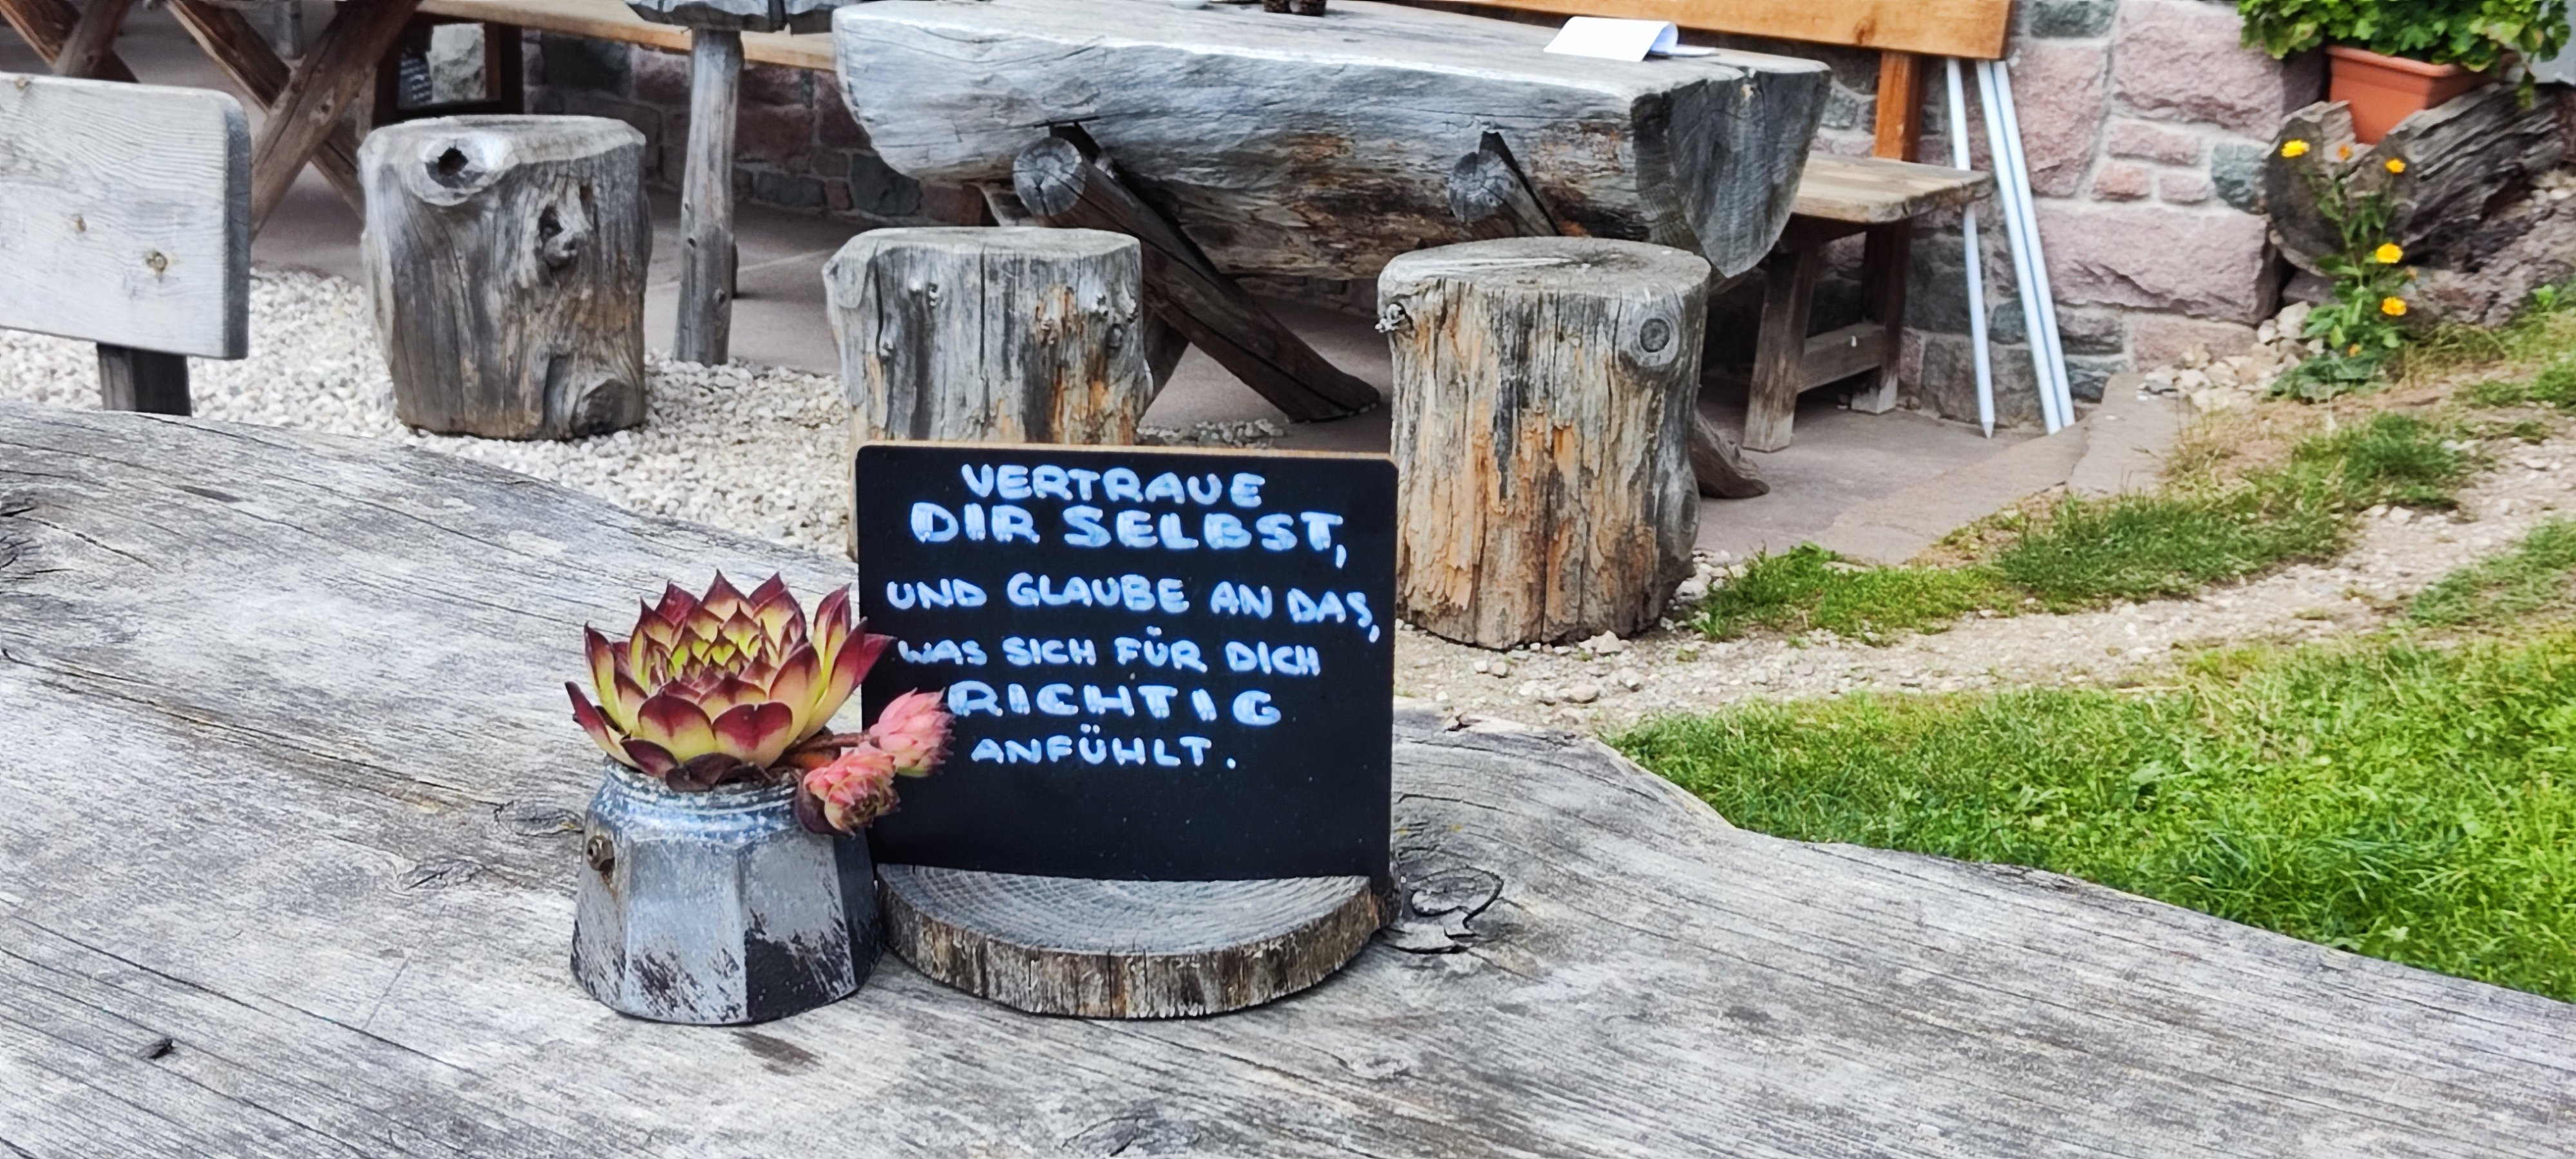 VERTRAUE
DIR SELBST,
UND GLAUBE AN DAS,
WAS SICH FÜR DICH
RICHTIG
ANFÜHLT.